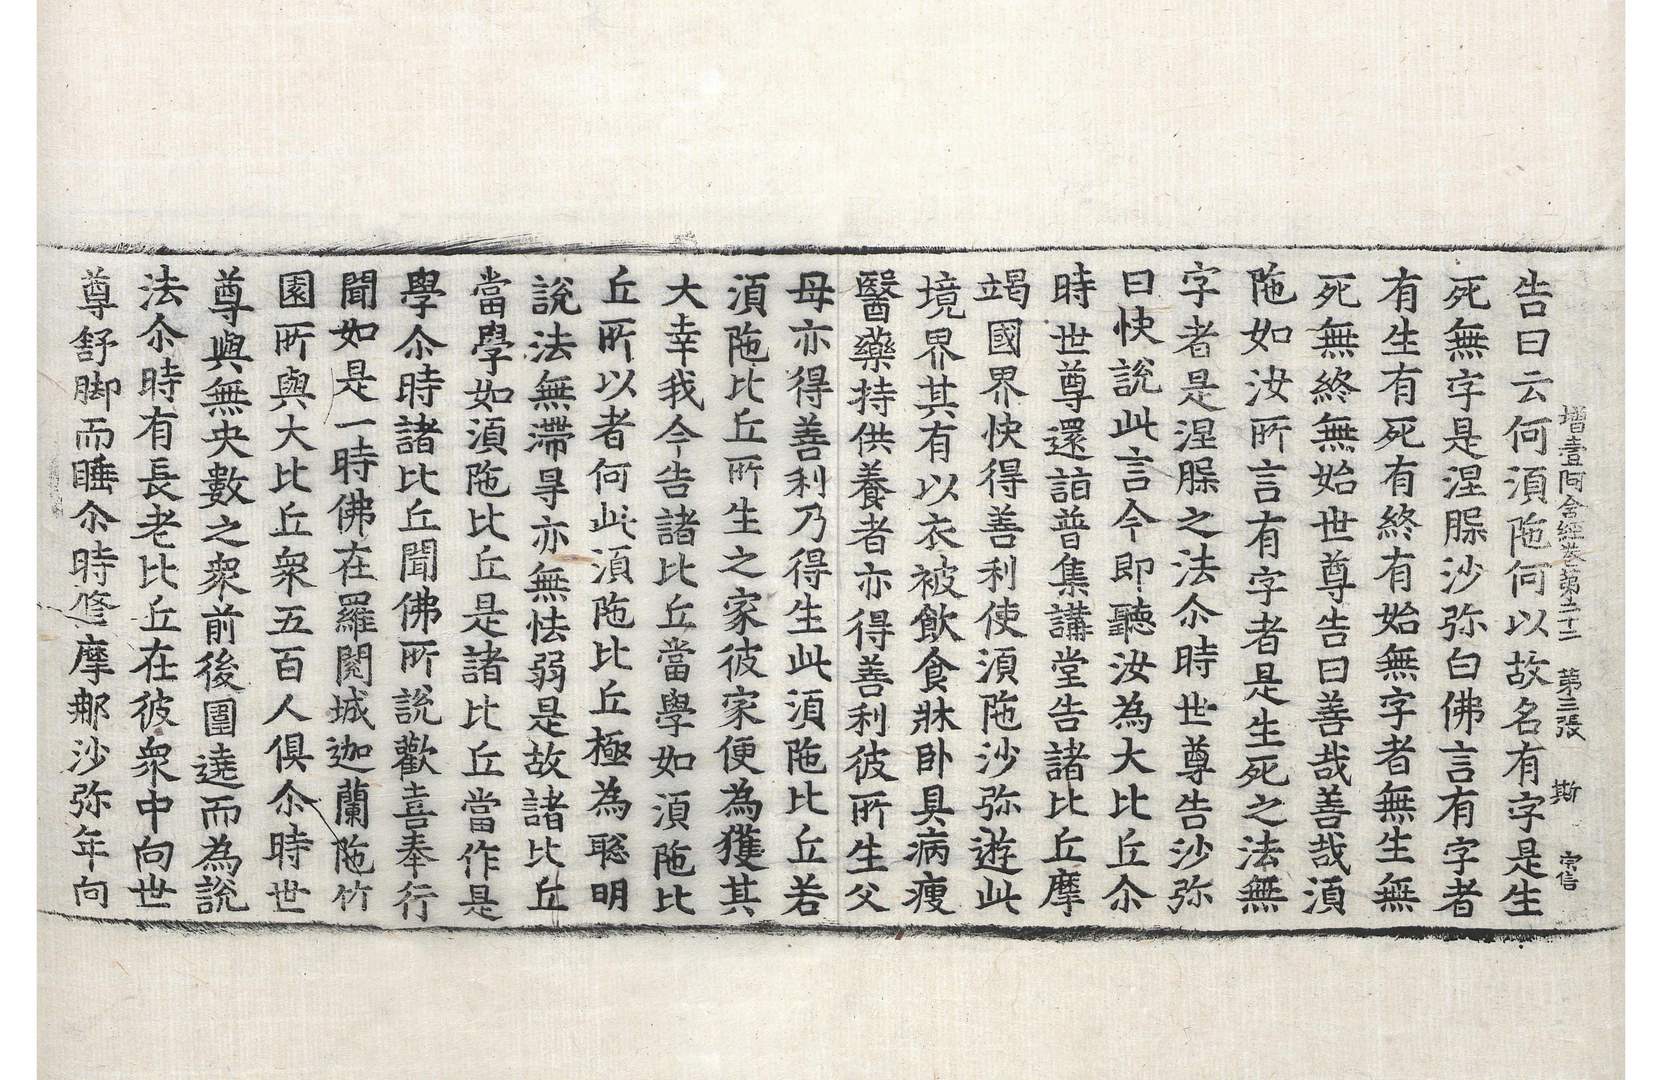 增壹阿含經卷第二十二 第三張 斯 宗信
告曰云何須陁何以故名有字是生
死無字是涅槃沙弥白佛言有字者
有生有死有終有始無字者無生無
死無終無始世尊告曰善哉善哉須
陁如汝所言有字者是生死之法無
字者是涅槃之法尒時世尊告沙弥
曰快說此言今即聽汝為大比丘尒
時世尊還詣普集講堂告諸比丘摩
竭國界快得善利使須陁沙弥遊此
境界其有以衣被飲食牀卧具病瘦
醫藥持供養者亦得善利彼所生父
母亦得善利乃得生此須陁比丘若
須陁比丘所生之家彼家便為獲其
大幸我今告諸比丘當學如須陁比
丘所以者何此須陁比丘極為聡明
說法無滯㝵亦無怯弱是故諸比丘
當學如須陁比丘是諸比丘當作是
學尒時諸比丘聞佛所說歡喜奉行
聞如是一時佛在羅閱城迦蘭陁竹
園所與大比丘衆五百人俱尒時世
尊與無央數之衆前後圍遶而為說
法尒時有長老比丘在彼衆中向世
尊舒脚而睡尒時修摩那沙弥年向